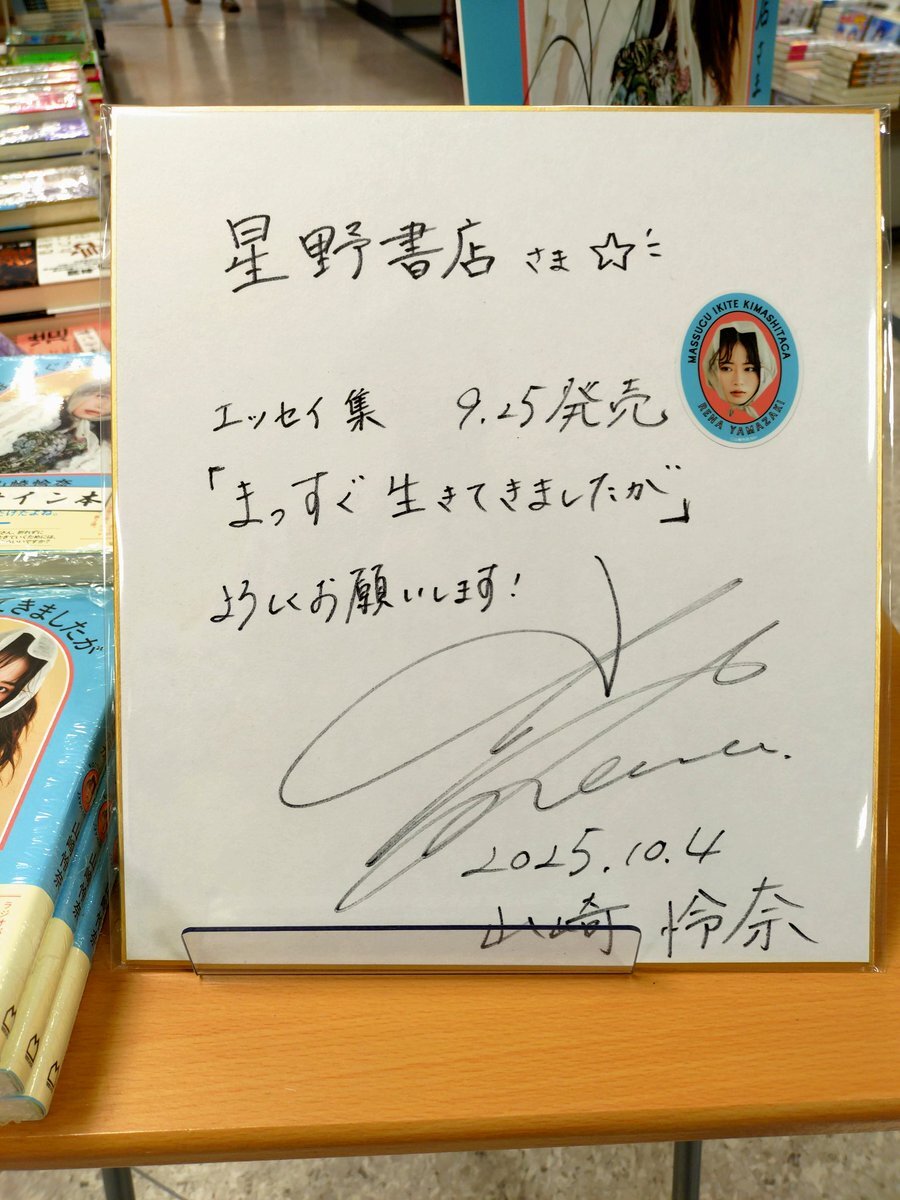 星野書店さま☆
エッセイ集 9.25発売
「まっすぐ生きてきましたが」
よろしくお願いします!
Rena.
2025.10.4
山崎 怜奈
MASSUGU IKITE KIMASHITAGA
RENA YAMAZAKI
山崎怜奈
サイン本
きましたが